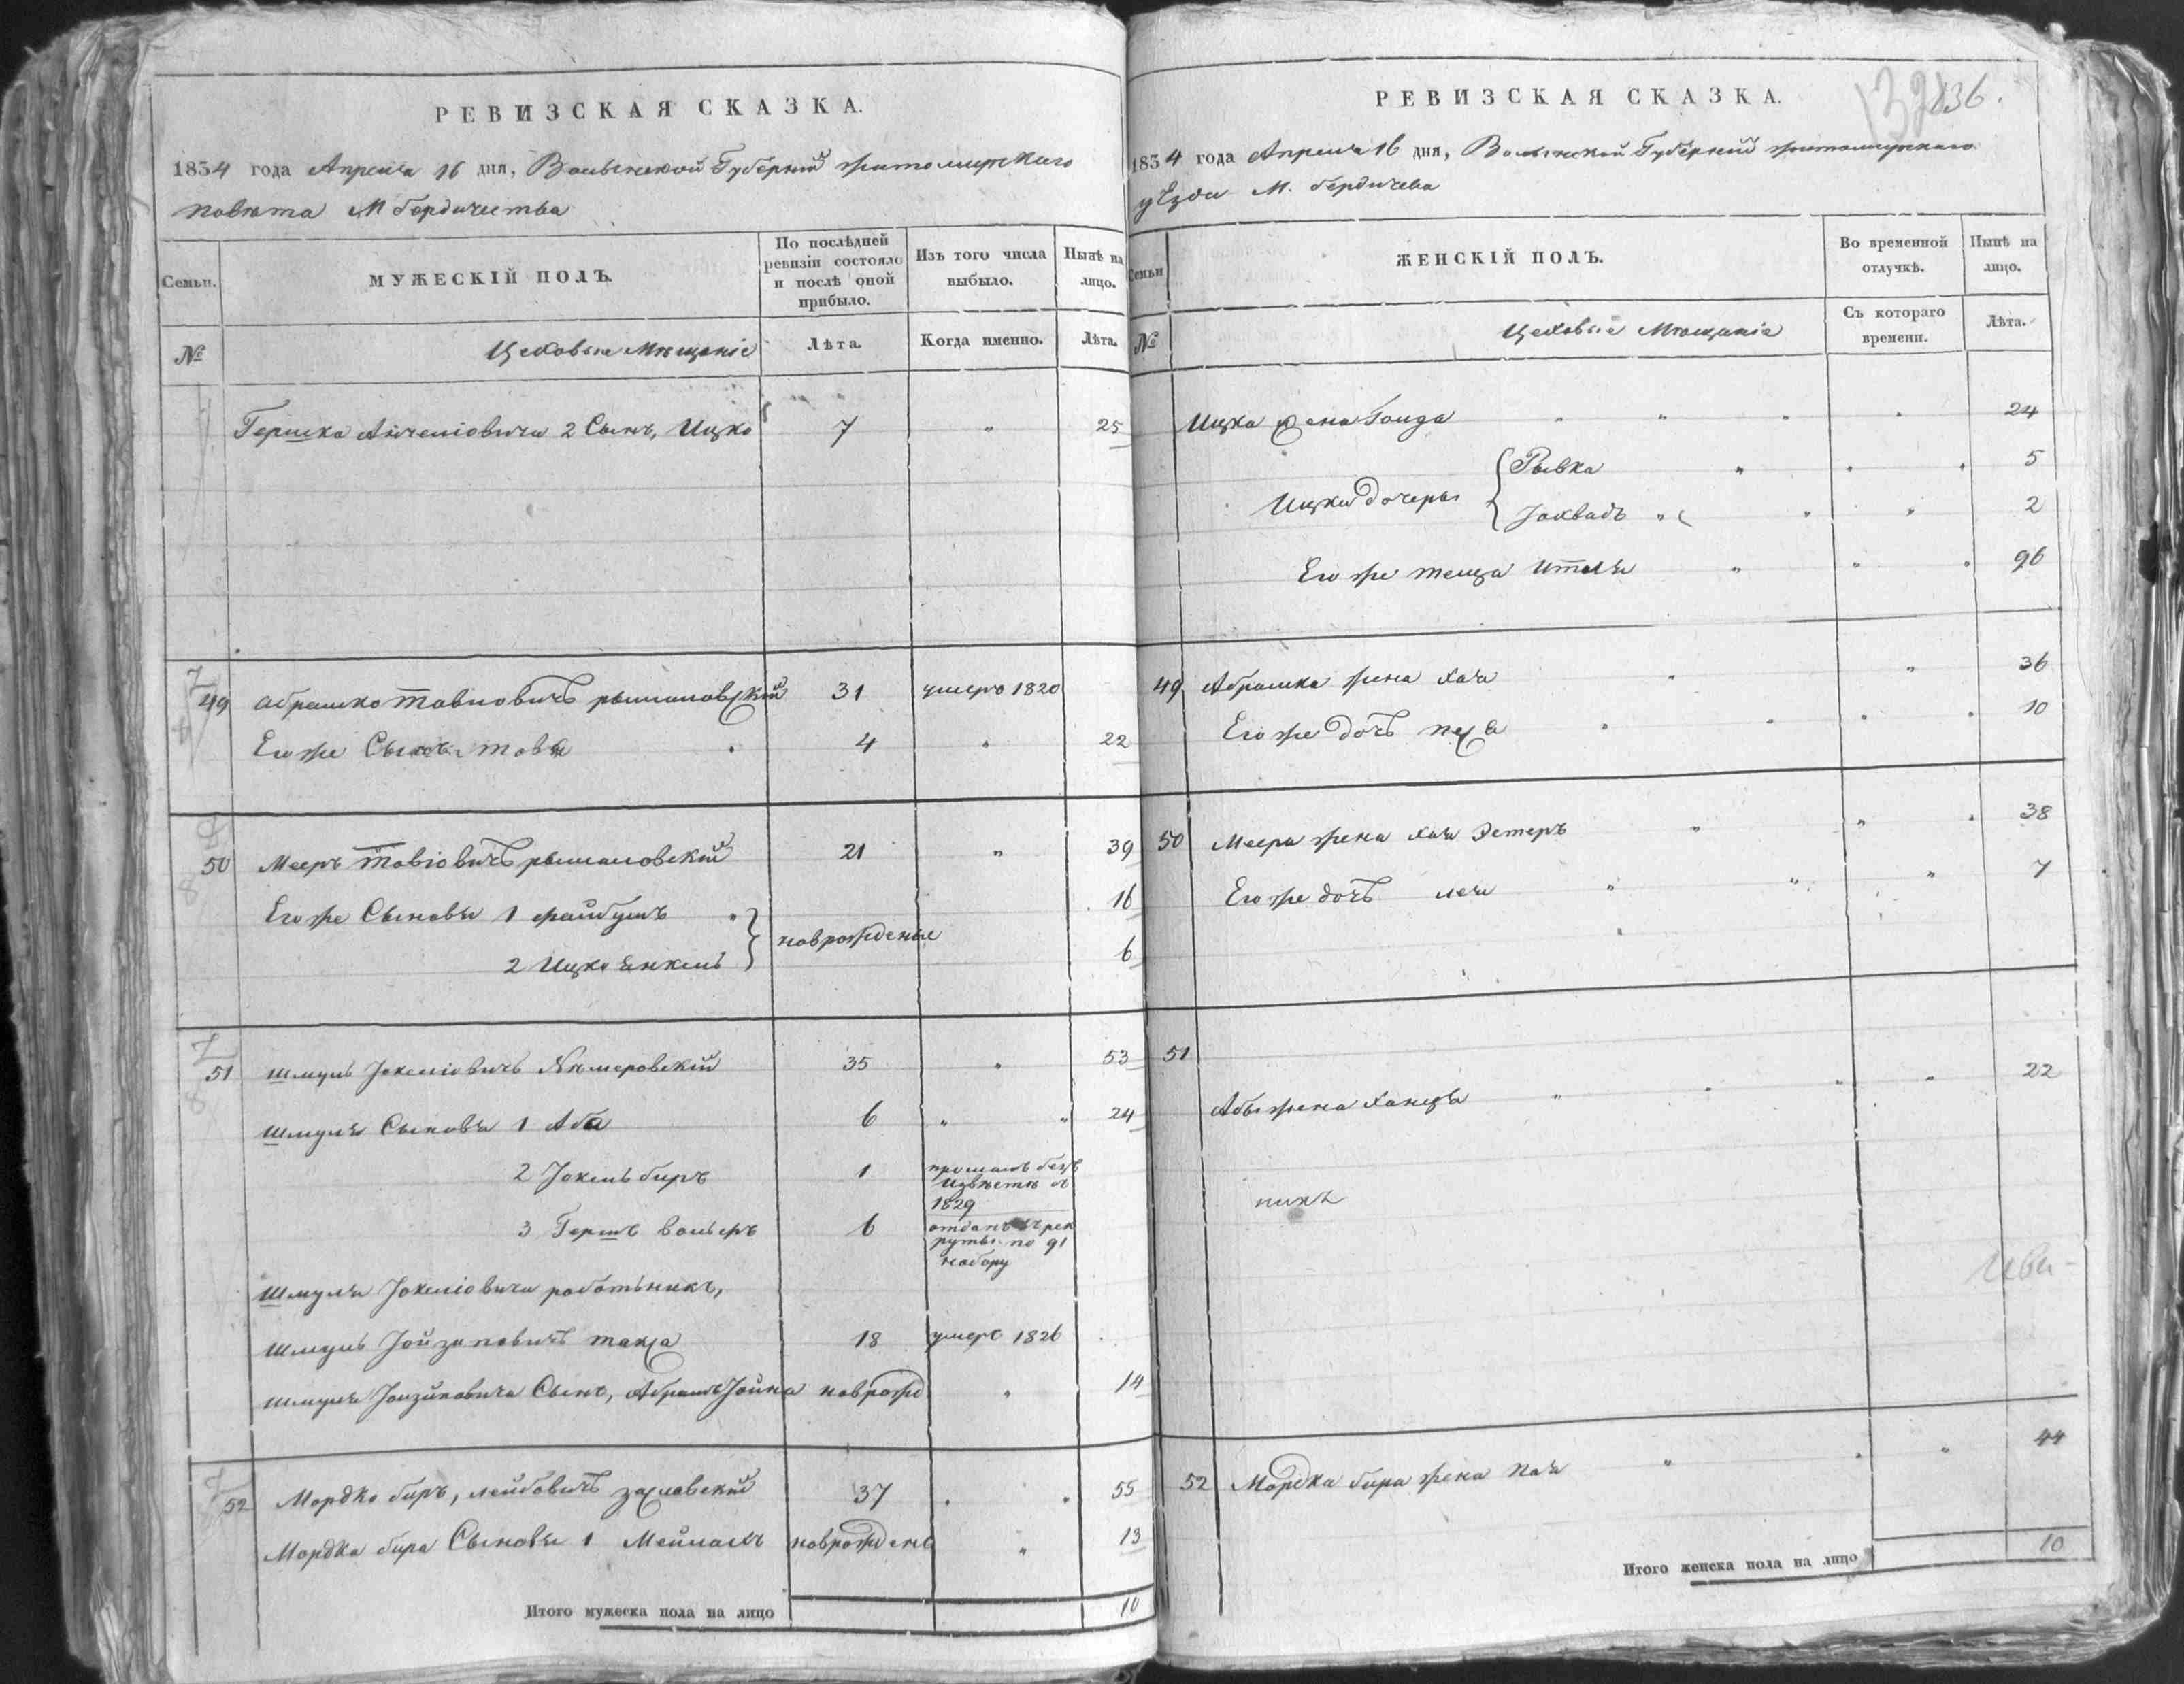 РЕВИЗСКАЯ СКАЗКА.
1834 года Апреля 16 дня, Волынской Губернiй житомирского
повѣта М бердичества
Семьи.
МУЖЕСКІЙ ПОЛЪ.
По послѣдней ревизіи состояло и послѣ оной прибыло.
Изъ того числа выбыло.
Нынѣ на лицо.
№
Цеховые Мѣщаніе
Лѣта.
Когда именно.
Лѣта.
Гершка Анчеліовича 2 Сынъ, Ицко 7 " 25
49 Абрамко Товиовичъ 31 умеръ 1820
Его же Сынъ товя 4 " 22
50 Мееръ Товіовичъ 21 " 39
Его же Сыновя 1 файбушъ 16
2 Ицко Енкель новрожденые 6
51 Шмуль Іохеліовичъ Нѣмеровскій 35 " 53
Шмуля Сыновя 1 Аба 6 " " 24
2 Іохель биръ 1 пропалъ безъ
извѣстѣ въ
1829
3 Гершъ вольфъ 6 отданъ въ рек
руты по 91
набору
Шмуля Іохеліовича работникъ,
Шмуль 18 умеръ 1826
Шмуля Сынъ, Абрамъ Іойна новрожд " 14
52 Мордко биръ, лейбовичъ заславскій 37 " " 55
Мордка бира Сыновя 1 Меймахъ новрожденъ " 13
Итого мужеска пола на лицо 10
РЕВИЗСКАЯ СКАЗКА.
136.
1834 года Апреля 16 дня, Волынской Губерній житомирскаго
уѣзда М. бердичева
Семьи
ЖЕНСКІЙ ПОЛЪ.
Во временной отлучкѣ.
Нынѣ на лицо.
№
Цеховые Мѣщаніе
Съ котораго времени.
Лѣта.
Ицка жена 24
Ицки дочеры Рывка " 5
Іохвадъ " 2
Его же теща Итля " 96
49 Абрамка жена хая " 36
Его же дочъ песя " 10
50 Меера жена хая Эстеръ " 38
Его же дочъ лея " 7
51
Абы жена ханця " 22
52 Мордка бира жена пая " 44
Итого женска пола на лицо 10